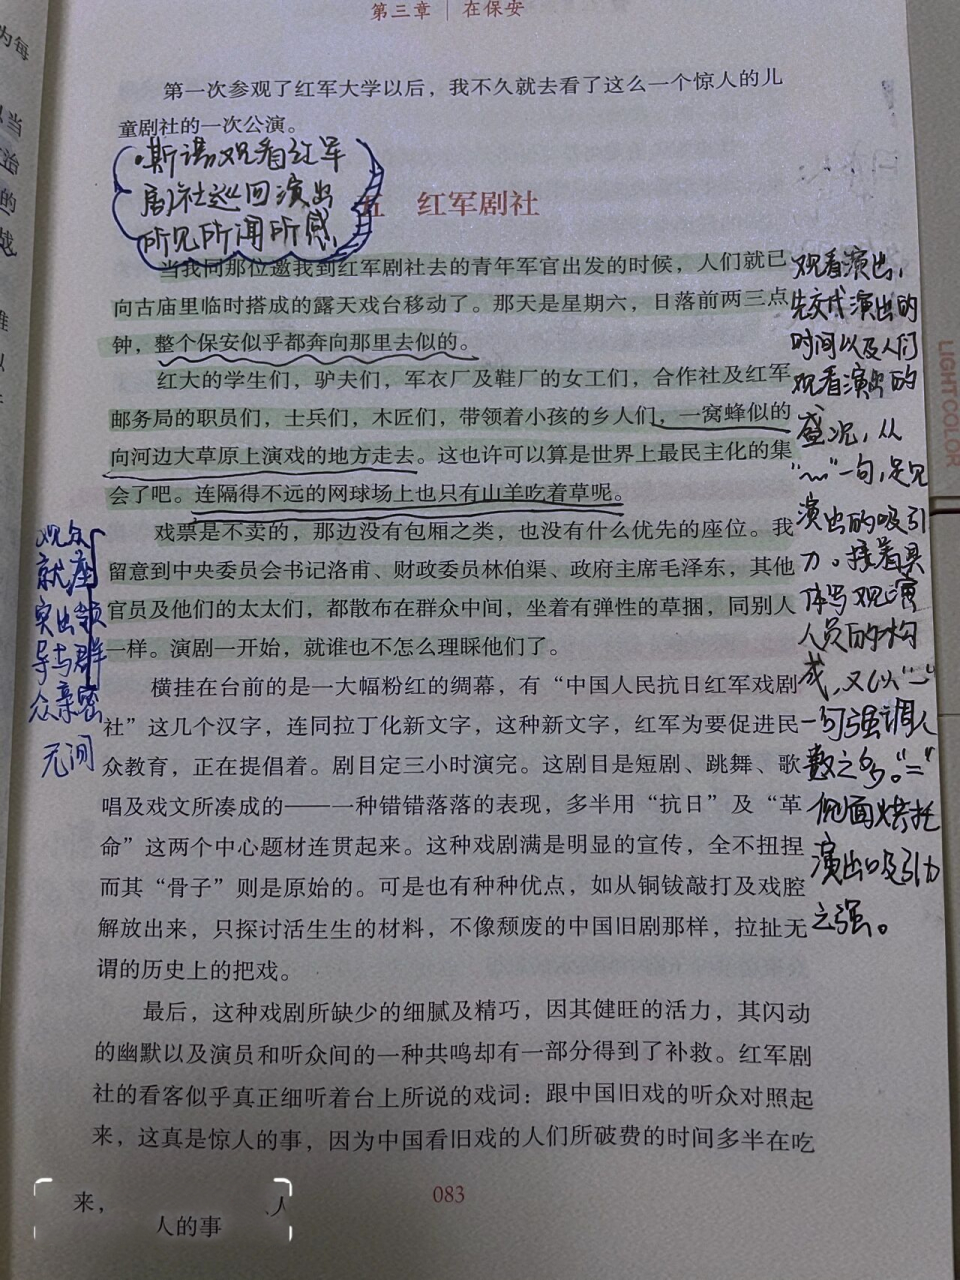 第三章 | 在保安
为每
第一次参观了红军大学以后，我不久就去看了这么一个惊人的儿
童剧社的一次公演。
·斯诺观看红军
剧社巡回演出
所见所闻所感
五 红军剧社
当我同那位邀我到红军剧社去的青年军官出发的时候，人们就已
向古庙里临时搭成的露天戏台移动了。那天是星期六，日落前两三点
钟，整个保安似乎都奔向那里去似的。
红大的学生们，驴夫们，军衣厂及鞋厂的女工们，合作社及红军
邮务局的职员们，士兵们，木匠们，带领着小孩的乡人们，一窝蜂似的
向河边大草原上演戏的地方走去。这也许可以算是世界上最民主化的集
会了吧。连隔得不远的网球场上也只有山羊吃着草呢。
戏票是不卖的，那边没有包厢之类，也没有什么优先的座位。我
留意到中央委员会书记洛甫、财政委员林伯渠、政府主席毛泽东，其他
官员及他们的太太们，都散布在群众中间，坐着有弹性的草捆，同别人
一样。演剧一开始，就谁也不怎么理睬他们了。
横挂在台前的是一大幅粉红的绸幕，有“中国人民抗日红军戏剧
社”这几个汉字，连同拉丁化新文字，这种新文字，红军为要促进民
众教育，正在提倡着。剧目定三小时演完。这剧目是短剧、跳舞、歌
唱及戏文所凑成的——一种错错落落的表现，多半用“抗日”及“革
命”这两个中心题材连贯起来。这种戏剧满是明显的宣传，全不扭捏
而其“骨子”则是原始的。可是也有种种优点，如从铜钹敲打及戏腔
解放出来，只探讨活生生的材料，不像颓废的中国旧剧那样，拉扯无
谓的历史上的把戏。
最后，这种戏剧所缺少的细腻及精巧，因其健旺的活力，其闪动
的幽默以及演员和听众间的一种共鸣却有一部分得到了补救。红军剧
社的看客似乎真正细听着台上所说的戏词：跟中国旧戏的听众对照起
来，这真是惊人的事，因为中国看旧戏的人们所破费的时间多半在吃
观看演出，
先交代演出的
时间以及人们
观看演出的
盛况，从
“﹏”一句，足见
演出的吸引
力。接着具
体写观演
人员的构
成，又以“—”
一句强调人
数之多。“=”
侧面烘托
演出吸引力
之强。
观众
就座
突出领
导与群
众亲密
无间
083
来，
人
人的事
LIGHT COLOR